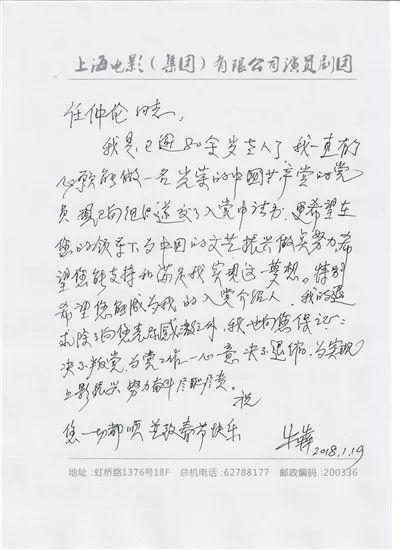 上海电影（集团）有限公司演员剧团
任仲伦同志,
我是已过80余岁老人了我一直有
心愿能做一名光荣的中国共产党的党
员 现已向组织递交了入党申请书. 更希望在
您的领导下为中国的文艺振兴做实努力希
望您能支持和满足我实现这一梦想。特别
希望您能做为我的入党介绍人. 我的追
求除了向您表示感谢之外, 我也向您保证:
决不叛党, 为党工作一心意, 决不退缩. 为实现
上影振兴 努力奋斗尽职尽责。
祝
您一切都顺 并致春节快乐
牛犇
2018.1.19
地址:虹桥路1376号18F 总机电话:62788177 邮政编码:200336